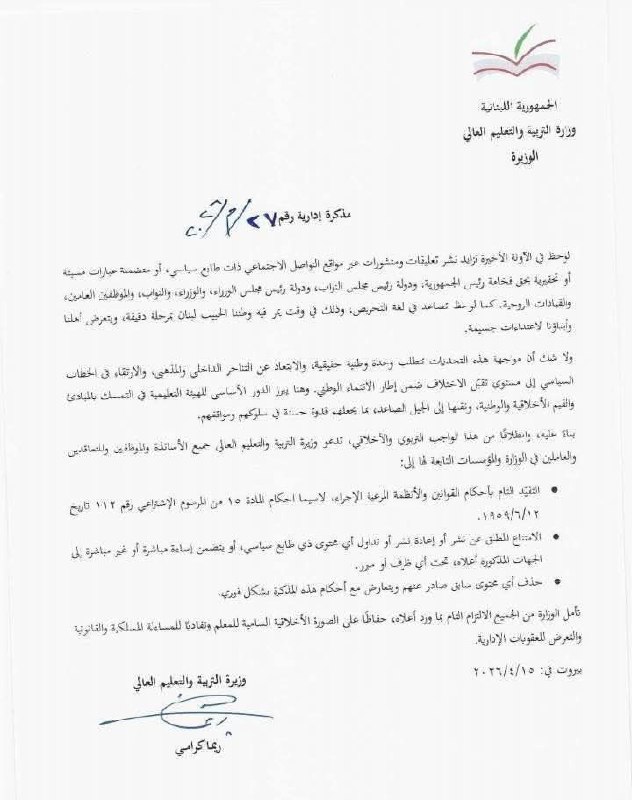 الجمهورية اللبنانية
وزارة التربية والتعليم العالي
الوزيرة
مذكرة إدارية رقم ٢٧/م/٢٠٢٦
لوحظ في الآونة الأخيرة تزايد نشر تعليقات ومنشورات عبر مواقع التواصل الاجتماعي ذات طابع سياسي، أو متضمنة عبارات مسيئة
أو تحقيرية بحق فخامة رئيس الجمهورية، ودولة رئيس مجلس النواب، ودولة رئيس مجلس الوزراء، والوزراء، والنواب، والموظفين العامين،
والقيادات الروحية. كما لوحظ تصاعد في لغة التحريض، وذلك في وقت يمر فيه وطننا الحبيب لبنان بمرحلة دقيقة، ويتعرض أهلنا
وأبناؤنا لاعتداءات جسيمة.
ولا شك أن موجهة هذه التحديات تتطلب وحدة وطنية حقيقية، والابتعاد عن التناحر الداخلي والمذهبي، والارتقاء في الخطاب
السياسي إلى مستوى تقبّل الاختلاف ضمن إطار الانتماء الوطني. وهنا يبرز الدور الأساسي للهيئة التعليمية في التمسك بالمبادئ
والقيم الأخلاقية والوطنية، ونقلها إلى الجيل الصاعد، بما يجعلهم قدوة حسنة في سلوكهم ومواقفهم.
بناءً عليه، وانطلاقًا من هذا الواجب التربوي والأخلاقي، تدعو وزيرة التربية والتعليم العالي جميع الأساتذة والموظفين والمتعاقدين
والعاملين في الوزارة والمؤسسات التابعة لها إلى:
• التقيّد التام بأحكام القوانين والأنظمة المرعية الإجراء، لاسيما احكام المادة ١٥ من المرسوم الإشتراعي رقم ١١٢ تاريخ
١٩٥٩/٦/١٢.
• الامتناع المطلق عن نشر أو إعادة نشر أو تداول أي محتوى ذي طابع سياسي، أو يتضمن إساءة مباشرة أو غير مباشرة إلى
الجهات المذكورة أعلاه، تحت أي ظرف أو مبرر.
• حذف أي محتوى سابق صادر عنهم ويتعارض مع أحكام هذه المذكرة بشكل فوري.
تأمل الوزارة من الجميع الالتزام التام بما ورد أعلاه، حفاظًا على الصورة الأخلاقية السامية للمعلم وتفاديًا للمساءلة المسلكية والقانونية
والتعرض للعقوبات الإدارية.
بيروت في: ٢٠٢٦/٤/١٥
وزيرة التربية والتعليم العالي
ريما كرامي